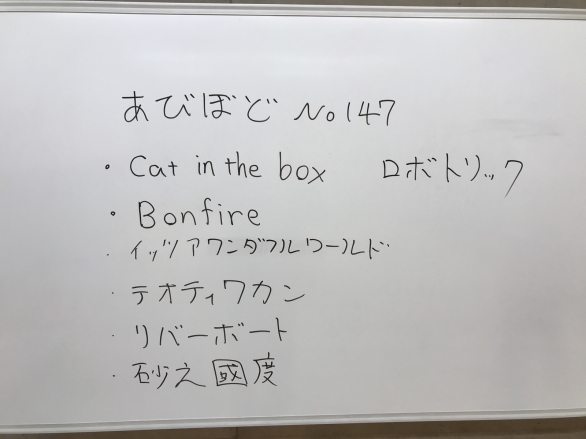 あびぼど No147
・Cat in the box ロボトリック
・Bonfire
・イッツアワンダフルワールド
・テオティワカン
・リバーボート
・砂之國度